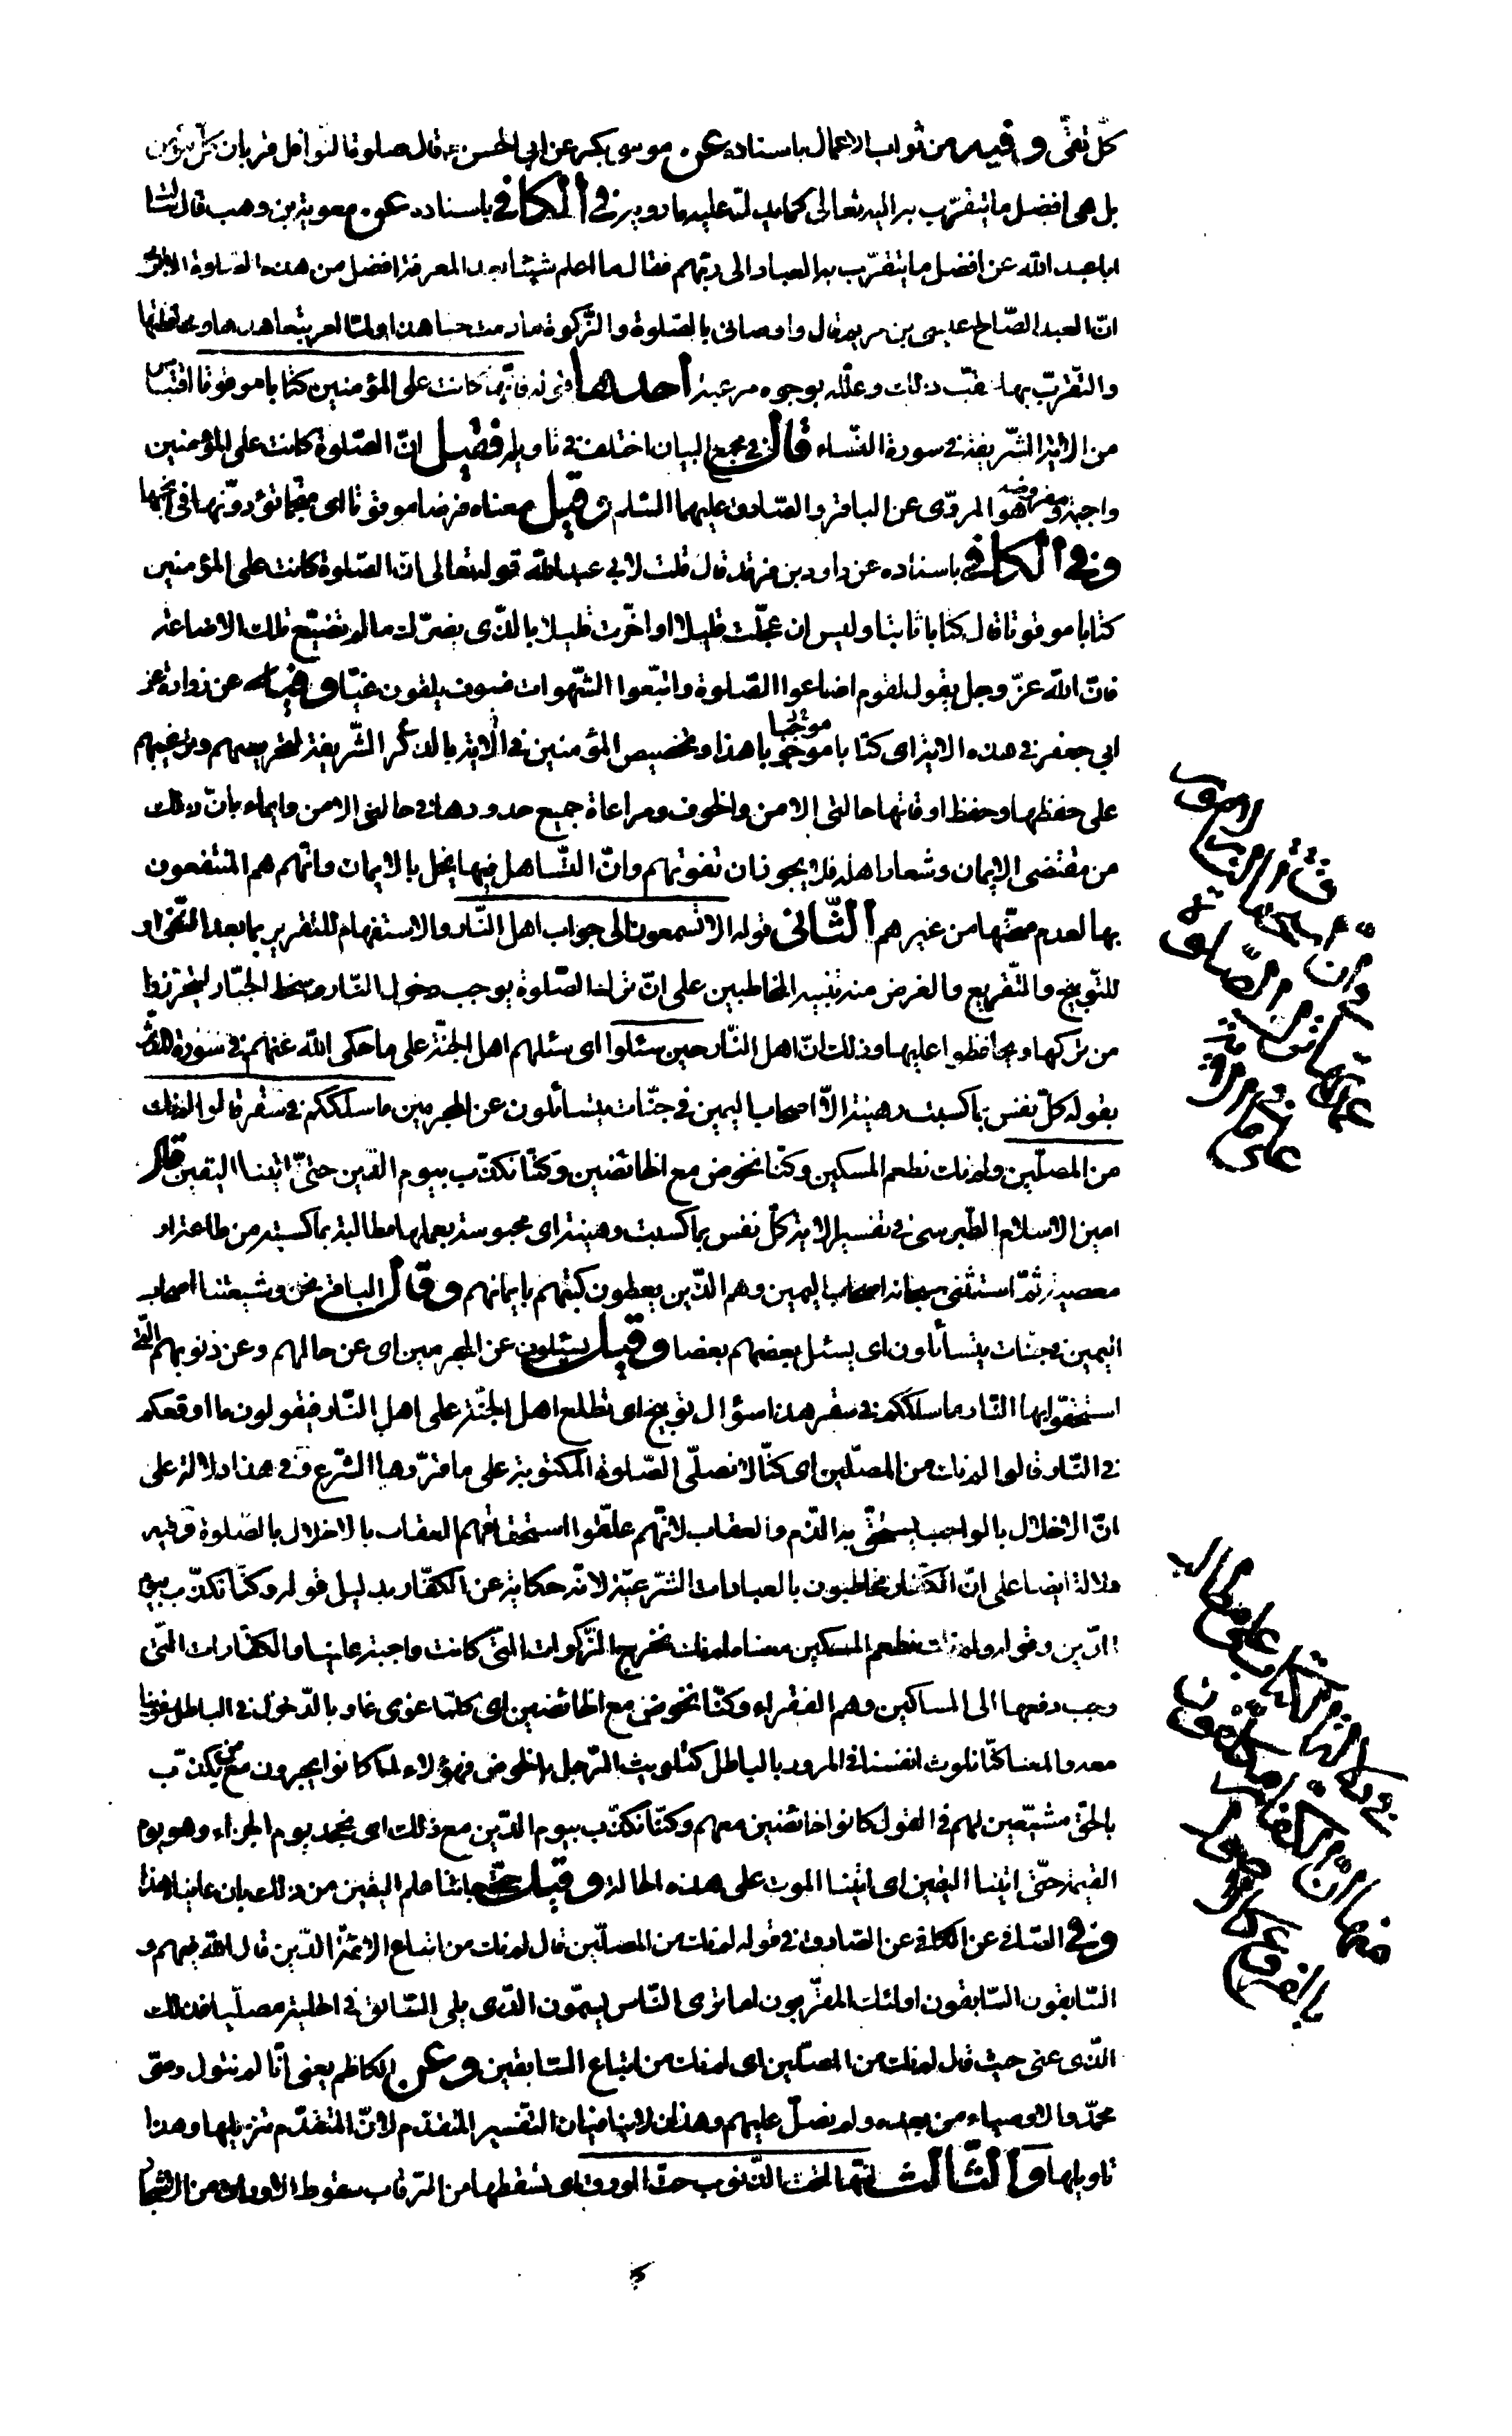 كلّ تقىّ وفيه من ثواب الاعمال باسناده عن موسى بكر عن ابى الحسن ع قال صلوة النوافل قربان كلّ مؤمن
بل هى افضل ما يتقرّب به اليه تعالى كما يدلّ عليه ما رويه فى الكافى باسناده عن معوية بن وهب قال سئلت
ابا عبد الله عن افضل ما يتقرّب به العباد الى ربّهم فقال ما اعلم شيئا بعد المعرفة افضل من هذه الصّلوة الا ترى
انّ العبد الصّالح عيسى بن مريم قال واوصانى بالصّلوة والزّكوة ما دمت حيّا هذا ولمّا امر بتعاهدها ومحافظتها
والتّقرّب بها عقّب ذلك وعلّله بوجوه مرغّبة احدها قوله فانّها كانت على المؤمنين كتابا موقوتا اقتباس
من الاية الشّريفة فى سورة النّساء قال فى مجمع البيان اختلف فى تاويله فقيل انّ الصّلوة كانت على المؤمنين
واجبة مفروضة وهو المروّى عن الباقر والصّادق عليهما السّلم وقيل معناه فرضا موقوتا اى منجّما تؤدّونها فى انجمها
وفى الكافى باسناده عن داود بن فرقد قال قلت لابى عبد الله قوله تعالى انّ الصّلوة كانت على المؤمنين
كتابا موقوتا قال كتابا ثابتا وليس ان عجّلت قليلا او اخّرت قليلا بالّذى يضرّك ما لم تضيّع تلك الاضاعة
فانّ الله عزّ وجل يقول لقوم اضاعوا الصّلوة واتّبعوا الشّهوات فسوف يلقون غيّا وفيه عن زرارة عن
ابي جعفر فى هذه الاية اى كتابا موجوبا هذا وتخصيص المؤمنين فى الاية بالذّكر الشّريفة لتحريصهم وترغيبهم
على حفظها وحفظ اوقاتها حالتى الامن والخوف ومراعاة جميع حدودها فى حالتى الامن وايماء بانّ ذلك
من مقتضى الايمان وشعار اهله فلا يجوز ان تفوتهم وانّ التّساهل فيها يخل بالايمان وانّهم هم المنتفعون
بها لعدم صحّتها من غيرهم الثّانى قوله الا تسمعون الى جواب اهل النّار والاستفهام للتقرير بما بعد النّفى او
للتّوبيخ والتّقريع والغرض منه تنبيه المخاطبين على انّ ترك الصّلوة يوجب دخول النّار وسخط الجبّار ليتحرّزوا
من تركها ويحافظوا عليها وذلك انّ اهل النّار حين سئلوا اى سئلهم اهل الجنّة على ما حكى الله عنهم فى سورة المدّثر
بقوله كلّ نفس بما كسبت رهينة الاّ اصحاب اليمين فى جنّات يتسائلون عن المجرمين ما سلككم فى سقر قالوا لم نك
من المصلّين ولم نك نطعم المسكين وكنّا نخوض مع الخائضين وكنّا نكذّب بيوم الدّين حتّى اتينا اليقين قال
امين الاسلام الطّبرسى فى تفسير الاية كلّ نفس بما كسبت رهينة اى محبوسة بعملها مطالبة بما كسبته من طاعة او
معصية ثمّ استثنى سبحانه اصحاب اليمين وهم الّذين يعطون كتبهم بايمانهم وقال الباقر نحن وشيعتنا اصحاب
اليمين فى جنّات يتسائلون اى يسئل بعضهم بعضا وقيل يسئلون عن المجرمين اى عن حالهم وعن ذنوبهم الّتى
استحقّوا بها النّار ما سلككم فى سقر هذا سؤال توبيخ اى تطلع اهل الجنّة على اهل النّار فيقولون ما اوقعكم
فى النّار قالوا لم نك من المصلّين اى كنّا لا نصلّى الصّلوة المكتوبة على ما قرّرها الشّرع وفى هذا دلالة على
انّ الاخلال بالواجب يستحقّ به الذّم والعقاب لانّهم علّقوا استحقاقهم العقاب بالاخلال بالصّلوة وفيه
دلالة ايضا على انّ الكفّار مخاطبون بالعبادات الشّرعيّة لانّه حكاية عن الكفّار بدليل قوله وكنّا نكذّب بيوم
الدّين وقوله ولم نك نطعم المسكين معناه لم نك نخرج الزّكوات الّتى كانت واجبة علينا والكفّارات الّتى
وجب دفعها الى المساكين وهم الفقراء وكنّا نخوض مع الخائضين اى كلّما غوى غاو بالدّخول فى الباطل غوينا
معه والمعنى كنّا نلوث انفسنا فى المرور بالباطل كتلويث الرّجل بالخوض فهؤلاء لمّا كانوا يجرون مع من يكذّب
بالحقّ مشيّعين لهم فى القول كانوا خائضين معهم وكنّا نكذّب بيوم الدّين مع ذلك اى نجحد يوم الجزاء وهو يوم
القيمة حتّى اتينا اليقين اى اتينا الموت على هذه الحالة وقيل حتّى جائنا علم اليقين من ذلك بان عايناه هذا
وفى الصّافى عن الكافى عن الصّادق فى قوله لم نك من المصلّين قال لم نك من اتباع الائمّة الّذين قال الله فيهم و
السّابقون السّابقون اولئك المقرّبون اما ترى النّاس يسمّون الّذى يلى السّابق فى الحلبة مصلّيا فذلك
الّذى عنى حيث قال لم نك من المصلّين اى لم نك من اتباع السّابقين وعن الكاظم يعنى انّا لم نتول وصىّ
محمّد والاوصياء من بعده ولم نصلّ عليهم وهذان لا ينافيان التّفسير المتقدّم لانّ المتقدّم تنزيلها وهذا
تاويلها والثّالث انّها لتحت الذّنوب حتّ الورق اى تسقطها من الرّقاب سقوط الاوراق من الاشجار